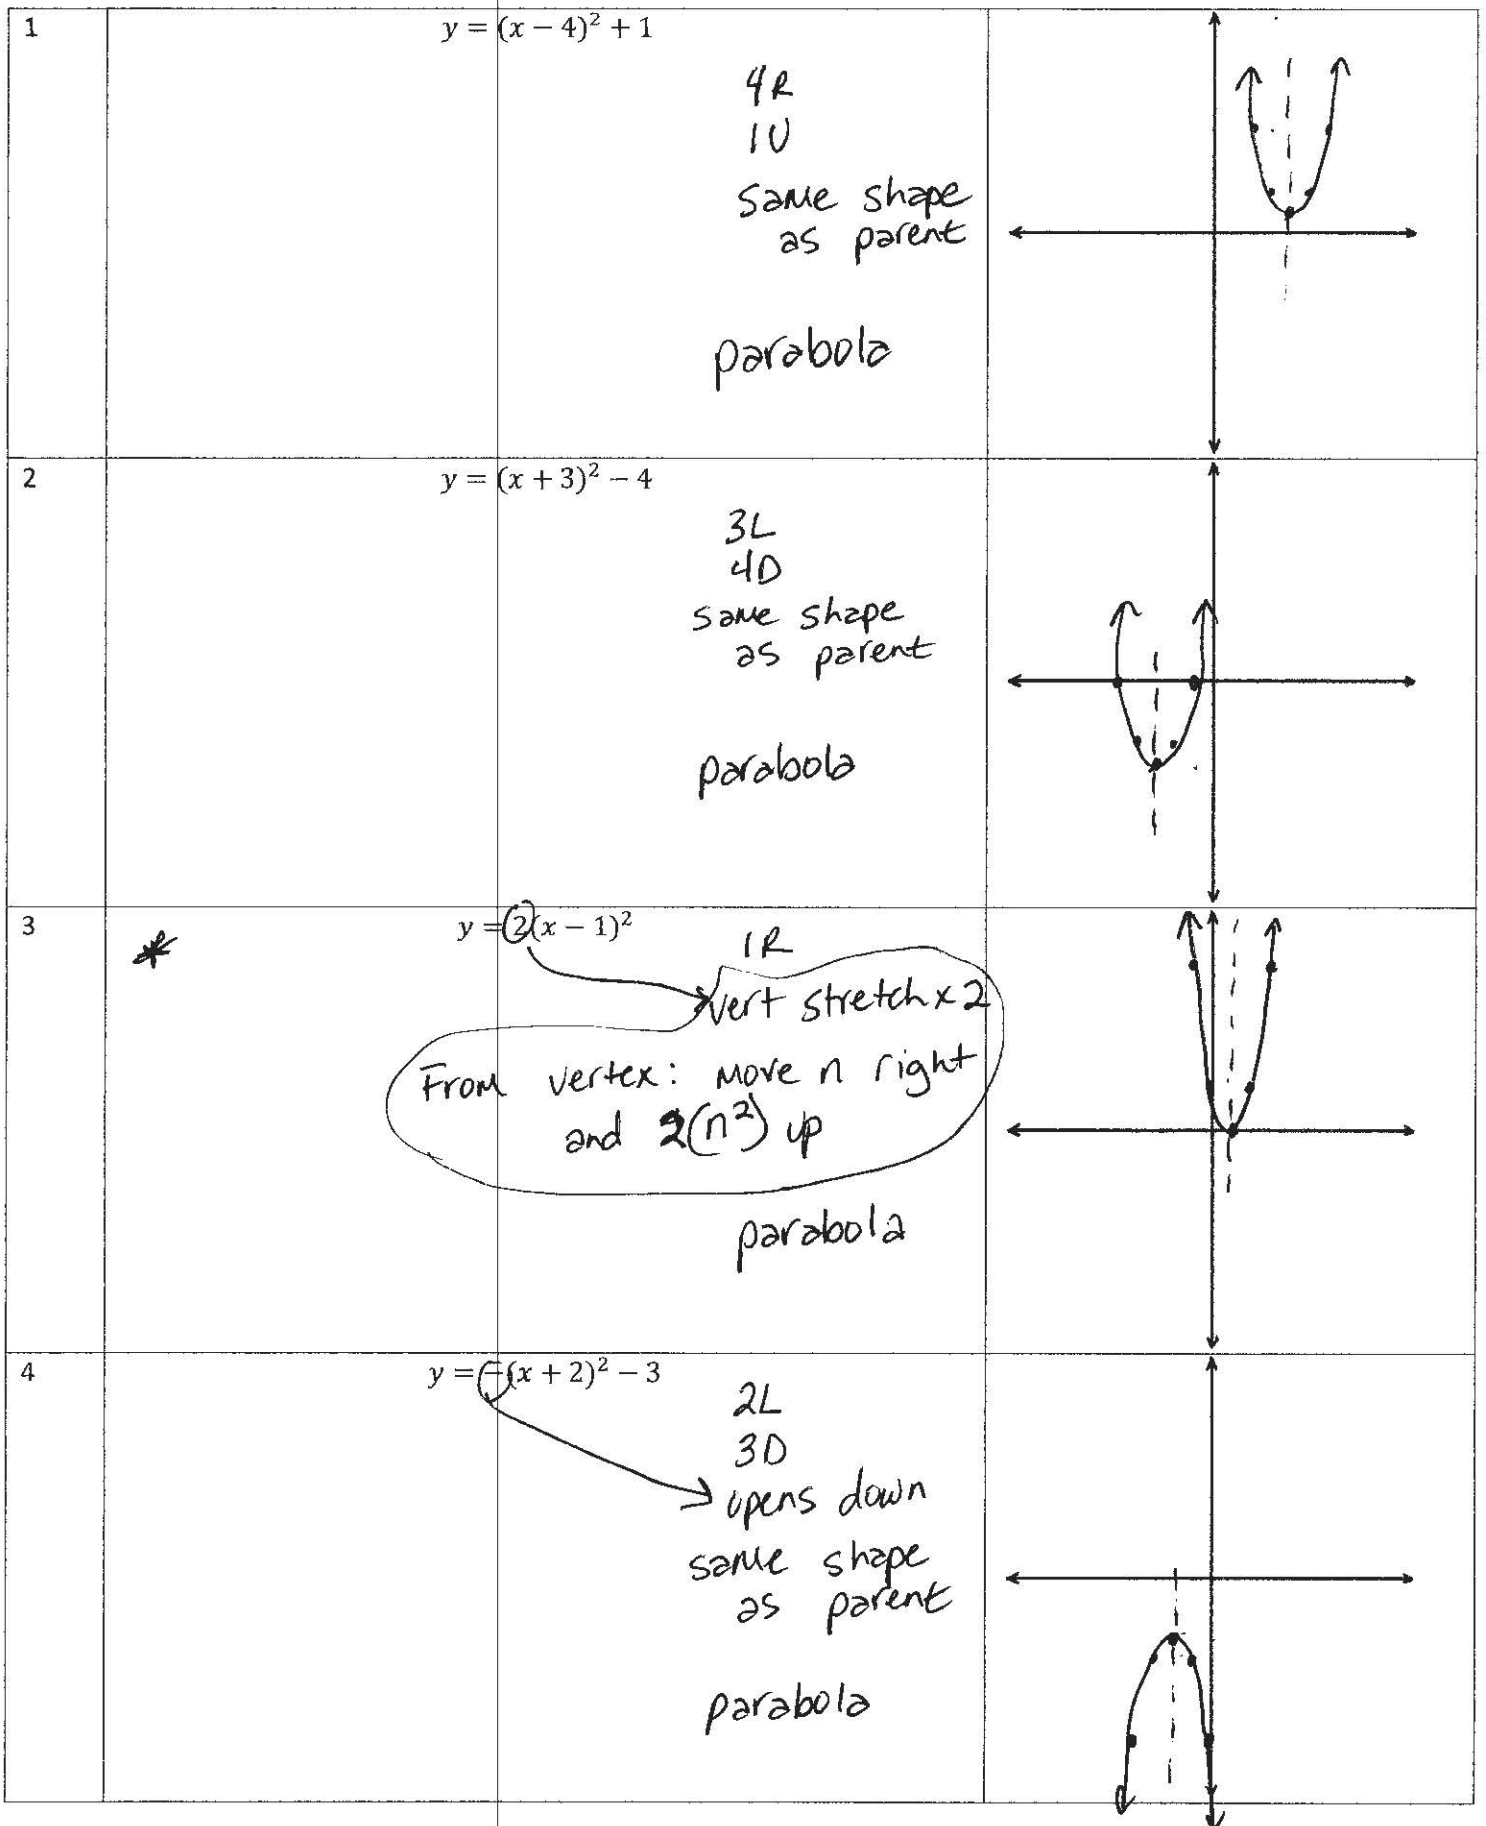 1
y = (x − 4)² + 1
4R
1U
same shape
as parent
parabola
2
y = (x + 3)² − 4
3L
4D
same shape
as parent
parabola
3
*
y = 2(x − 1)²
1R
vert stretch x 2
From vertex: move n right
and 2(n²) up
parabola
4
y = −(x + 2)² − 3
2L
3D
opens down
same shape
as parent
parabola